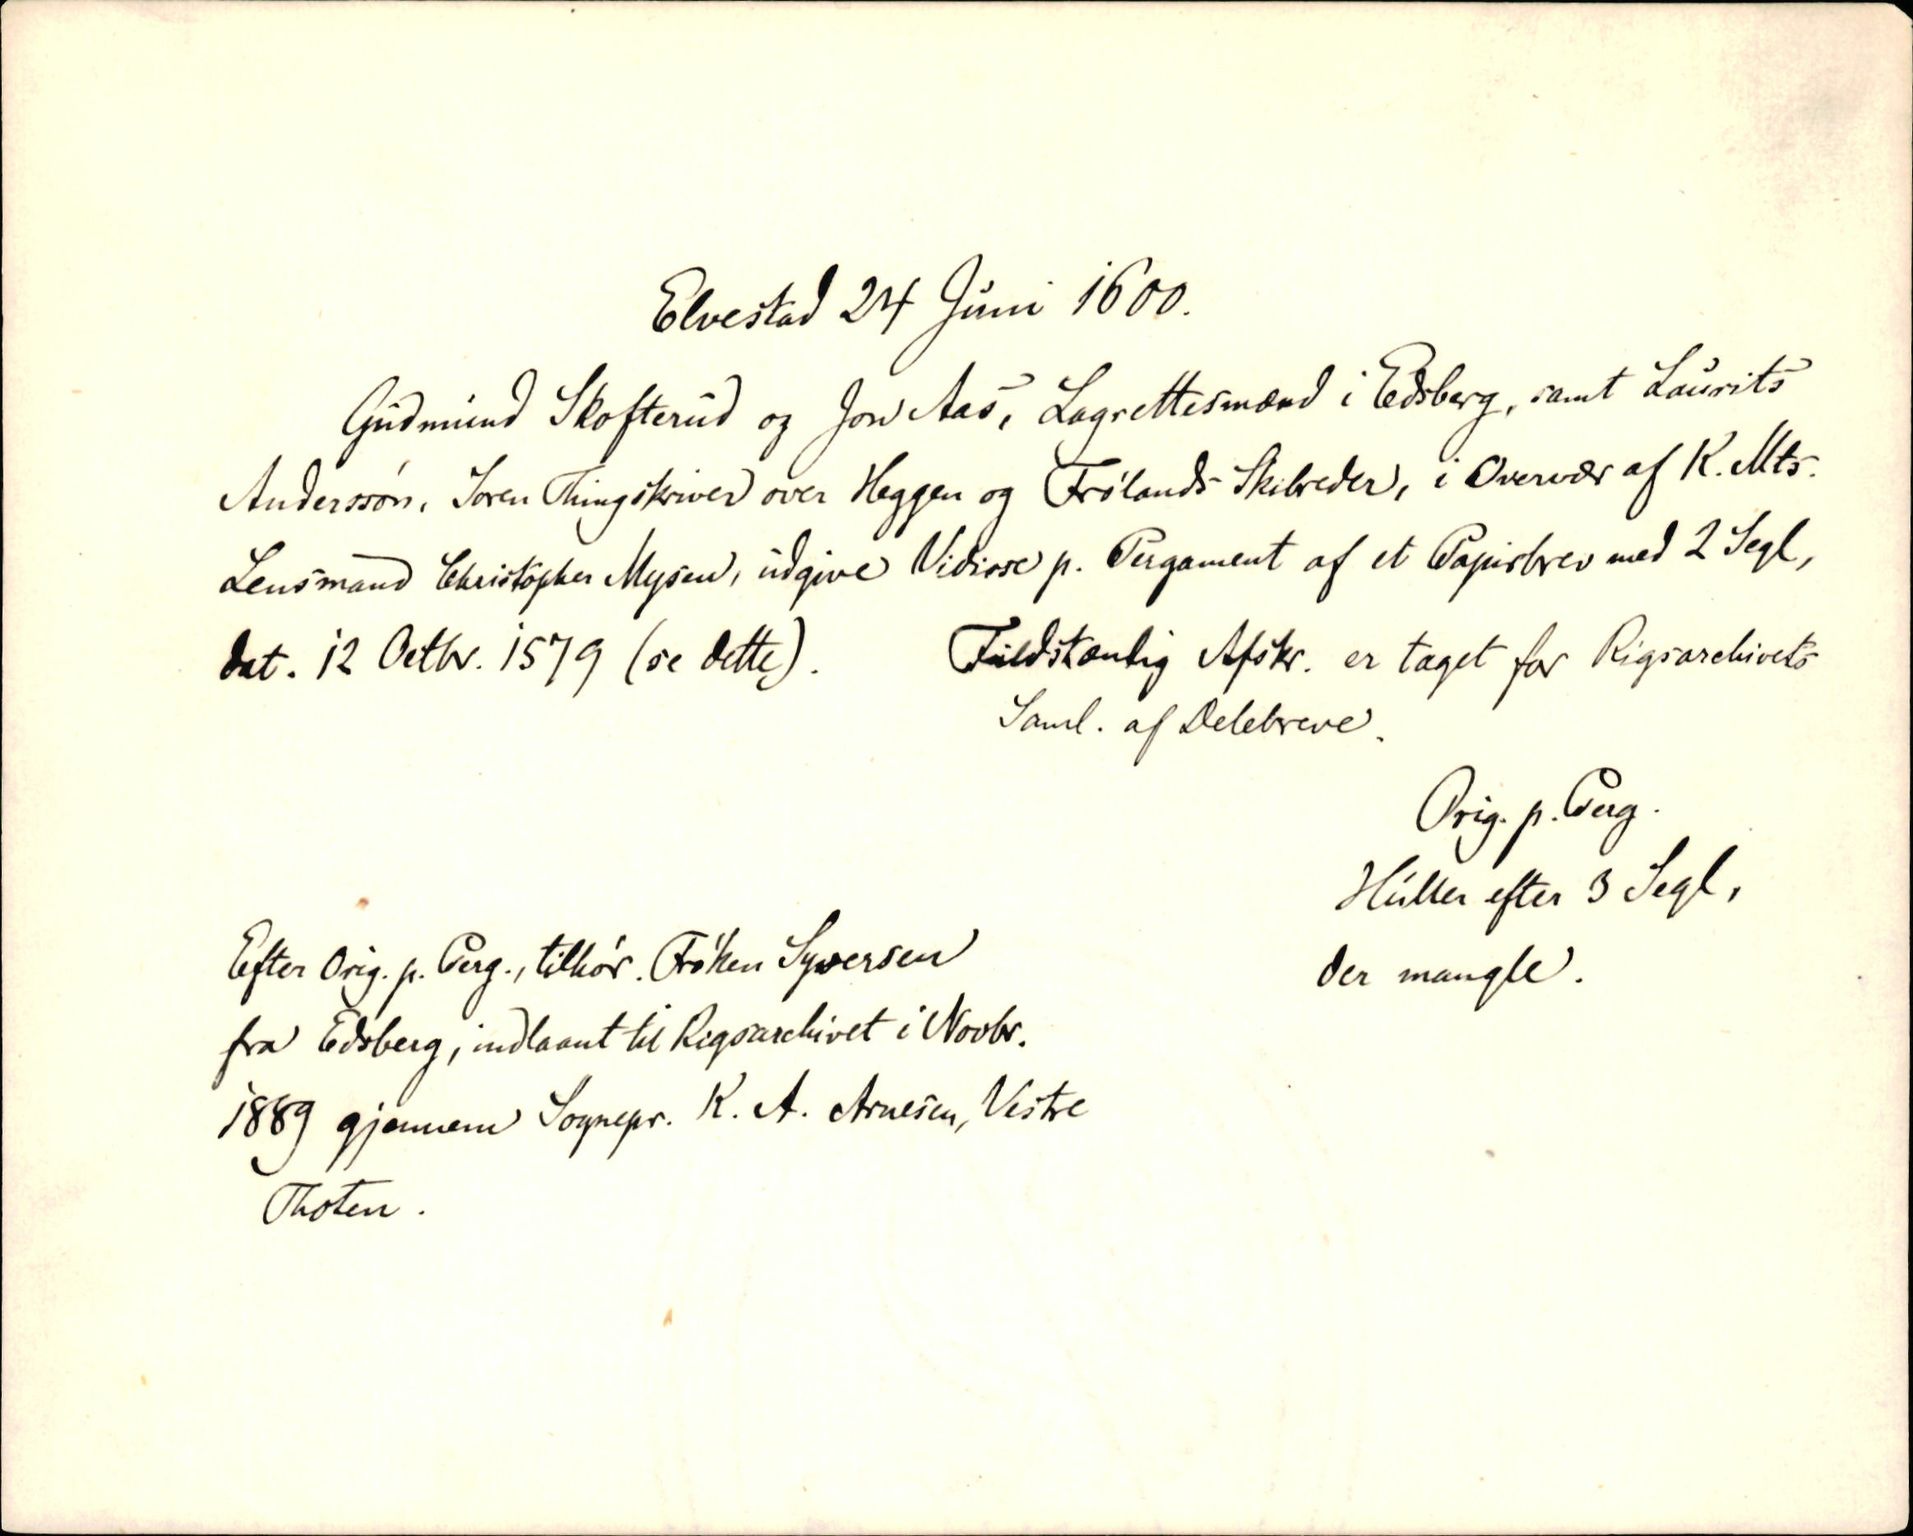 Elvestad 24 Juni 1600.
Gudmund Skofterud og Jon Aas, Lagrettesmænd i Edsberg, samt Laurits
Anderssøn, Soren Thingskriver over Heggen og Frølands Skibreder, i Overvær af K. Mts.
Lensmand Christopher Mysen, udgive Vidisse p. Pergament af et Papirbrev med 2 Segl,
dat. 12 Octbr. 1579 (se dette). Fuldstændig Afskr. er taget for Rigsarchivets
Saml. af Delebreve.
Orig. p. Perg.
Huller efter 3 Segl,
der mangle.
Efter Orig. p. Perg., tilhør. Frøken Syversen
fra Edsberg, indlaant til Rigsarchivet i Novbr.
1889 gjennem Sognepr. K. A. Arnesen, Vestre
Thoten.